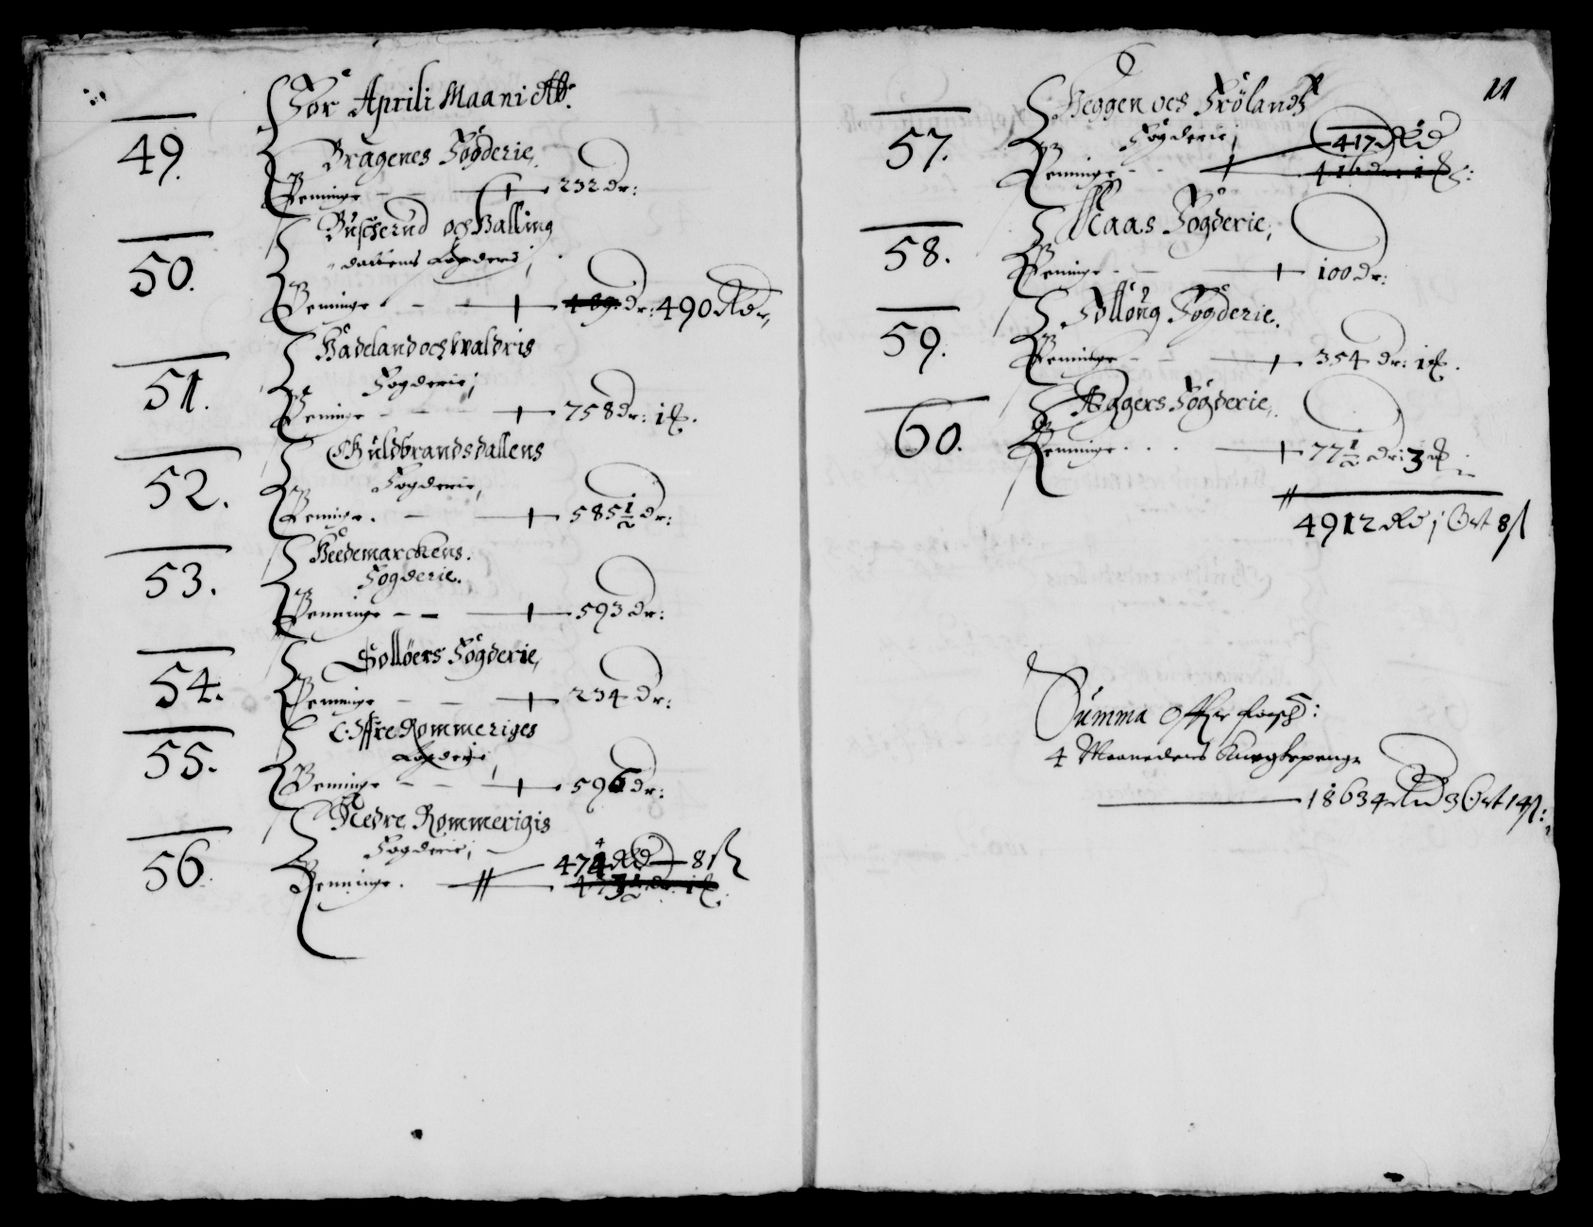 For Aprili Maanidt
49.
Bragenes Fögderie,
Penninge — — 232 dr:
50.
Buscherud och Halling
dallens Fogderi,
Penninge — — 489 dr: 490 Rdr,
51.
Hadeland och Waldris
Fogderie,
Penninge — — 758 dr: 1 ℔.
52.
Guldbrandsdallens
Fogderie,
Penninge. — 585 1/2 dr:
53.
Heedemarckens.
Fogderie.
Penninge — — 593 dr:
54.
Sollöers Fögderie,
Penninge — — 234 dr:
55.
Öffre Rommeriges
Fogderie,
Penninge — — 596 dr:
56.
Nedre Rommerigis
Fogderie,
474 Rd — 8 ß
Penninge.
6
11
57.
Heggen och Frölandz
Fögderie,
417 Rd
Penninge — 416 dr: 1 ℔:
58.
Naas Fögderie,
Penninge — — 100 dr:
59.
Follöug Fögderie.
Penninge — — 354 dr: 1 ℔.
60.
Aggers Fögderie,
Penninge . . . 77 1/2 dr: 3 ℔
4912 Rd 1 Ort 8 ß
Summa Offer forsch:
4 Maaneders Kuegkepenge
18634 Rd 3 Ort 14 ß: